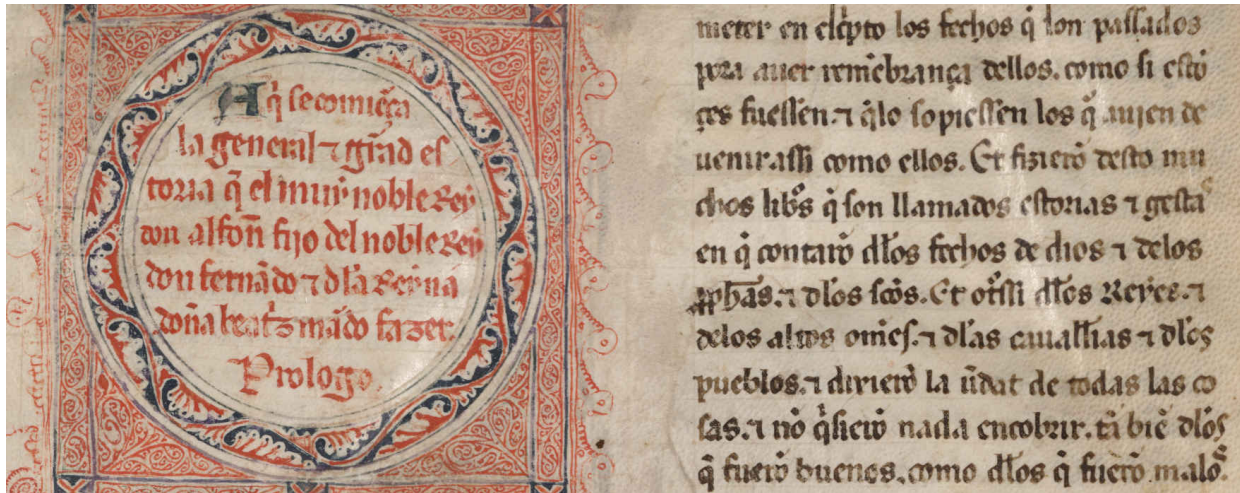 Aq̃ se comiẽça
la general ⁊ grãd es
toria q̃ el muy noble Rey
don alfon̄ fijo del noble Rey
don fernãdo ⁊ dl̃a Reyna
doña beat̃z mãdo fazer.
Prologo.
meter en escͥpto los fechos q̃ son passados
pora auer remẽbrança dellos. como si estõ
çes fuessen. ⁊ q̃lo sopiessen los q̃ auien de
uenir. assi como ellos. Et fizierõ desto mu
chos lib̃s q̃ son llamados estorias ⁊ gestas
en q̃ contarõ dl̃os fechos de dios ⁊ delos
ꝓph̃as. ⁊ dl̃os sc̃os. Et ot̃ssi dl̃os Reyes. ⁊
delos altos om̃es. ⁊ dl̃as cauall̃ias ⁊ dl̃os
pueblos. ⁊ dixierõ la ũdat de todas las co
sas. ⁊ nõ q̃sierõ nada encobrir. tã biẽ dl̃os
q̃ fuerõ buenos. como dl̃os q̃ fuerõ malos.